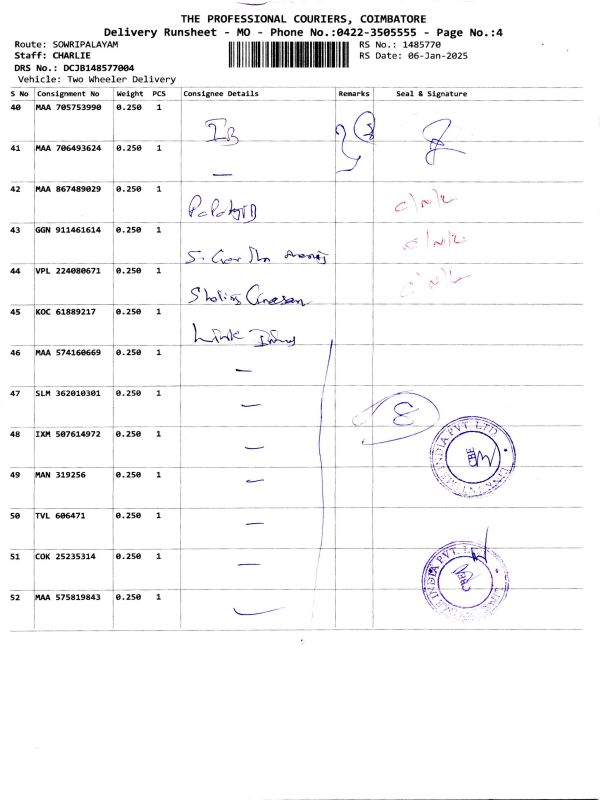 THE PROFESSIONAL COURIERS, COIMBATORE
Delivery Runsheet - MO - Phone No.:0422-3505555 - Page No.:4
Route: SOWRIPALAYAM
RS No.: 1485770
Staff: CHARLIE
RS Date: 06-Jan-2025
DRS No.: DCJB148577004
Vehicle: Two Wheeler Delivery
S No Consignment No Weight PCS Consignee Details Remarks Seal & Signature
40 MAA 705753990 0.250 1
41 MAA 706493624 0.250 1 —
42 MAA 867489029 0.250 1
43 GGN 911461614 0.250 1
44 VPL 224080671 0.250 1
45 KOC 61889217 0.250 1 Link
46 MAA 574160669 0.250 1 —
47 SLM 362010301 0.250 1 —
48 IXM 507614972 0.250 1 —
49 MAN 319256 0.250 1 —
50 TVL 606471 0.250 1 —
51 COK 25235314 0.250 1 —
52 MAA 575819843 0.250 1 —
INDIA PVT. LTD
INDIA PVT. LTD